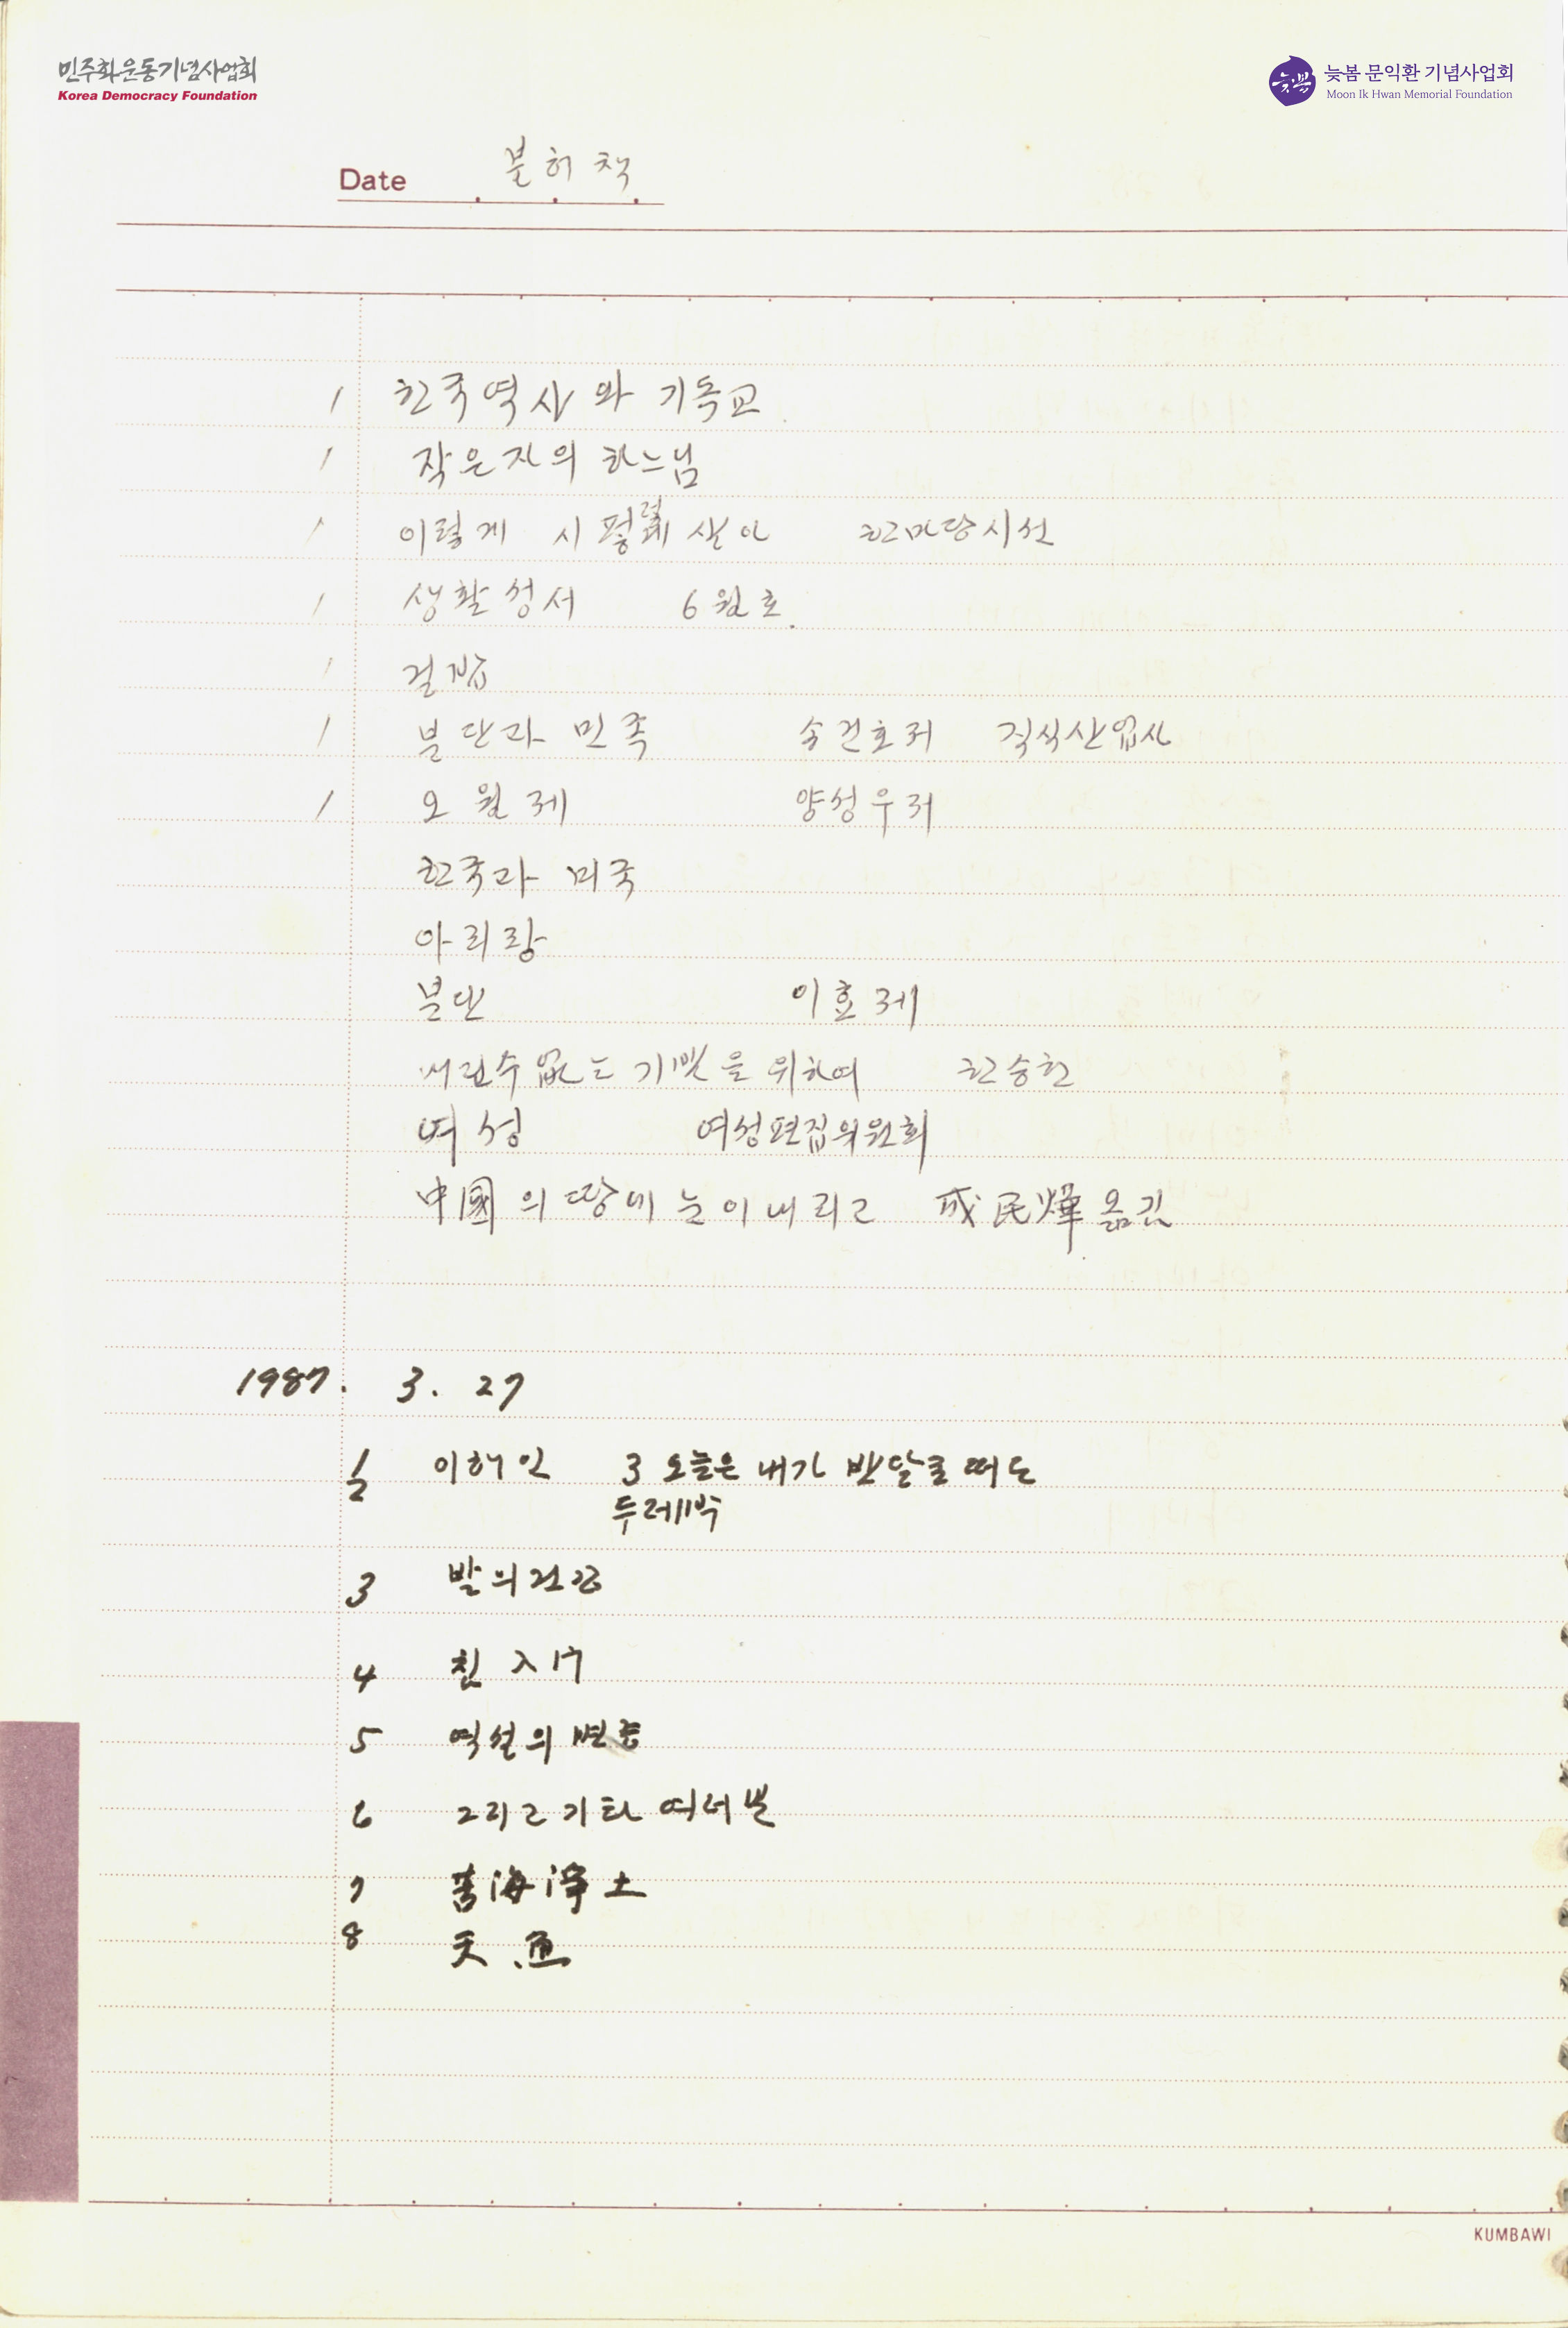 민주화운동기념사업회
Korea Democracy Foundation
늦봄 문익환 기념사업회
Moon Ik Hwan Memorial Foundation
Date 불허책
/ 한국역사와 기독교
/ 작은자의 하느님
/ 이렇게 시 살아 한마당시선
/ 생활성서 6월호.
/ 길밖
/ 분단과 민족 송건호저 지식산업사
/ 오월제 양성우저
한국과 미국
아리랑
분단 이효재
수 없는 기 을 위하여 한승헌
여성 여성편집위원회
中國의 땅에 눈이 내리고 成民燁 옮김
1987. 3. 27
1/2 이해인 3 오늘은 내가 반달로 떠도
두레박
3 발의 건강
4 친
5 역설의 변증
6 그리고 기타 여러분
7 苦海淨土
8 天
KUMBAWI